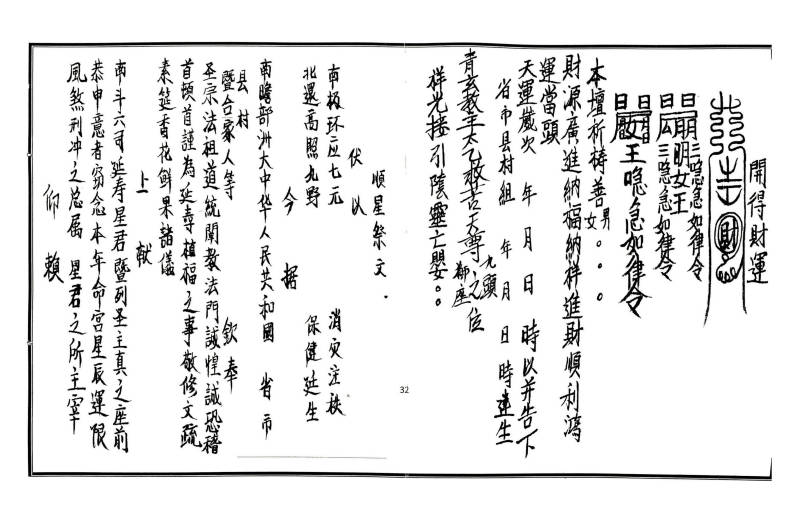 開得財運
財
唵急如律令
明女王
三唵急如律令
女王唵急如律令
本壇祈祷善男女。。。
財源廣進納福納祥進財順利鴻
運當頭
天運歲次 年 月 日 時以并告下
省市县村組 年 月 日 時建生
青玄教主太乙救苦天尊九頭之位
祥光接引陰靈亡嬰。。
32
順星祭文
伏以
南极环应七元 消灾注秩
北還高照九野 保健延生
今据
南瞻部洲大中华人民共和國 省 市
县村
暨合家人等 欽奉
圣宗法祖道統闡教法門誠惶誠恐稽
首頓首謹為延尋植福之事敬修文疏
素筵香花鲜果諸儀
上献
南斗六司延寿星君暨列圣主真之座前
恭申意者窃念本年命宫星辰運限
風煞刑冲之总属 星君之所主宰
仰賴